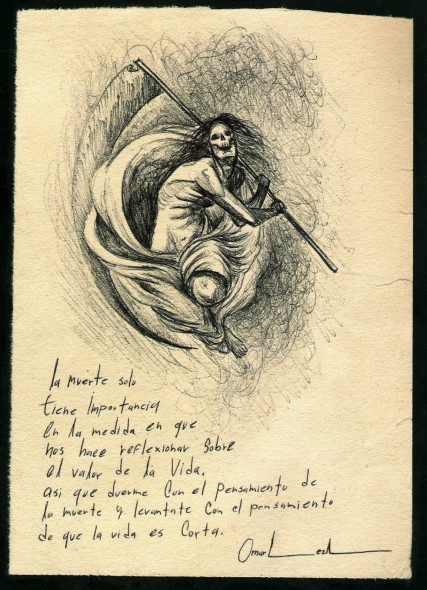 la muerte solo
tiene importancia
en la medida en que
nos hace reflexionar sobre
el valor de la Vida.
asi que duerme con el pensamiento de
la muerte y levantate con el pensamiento
de que la vida es Corta.
Omar